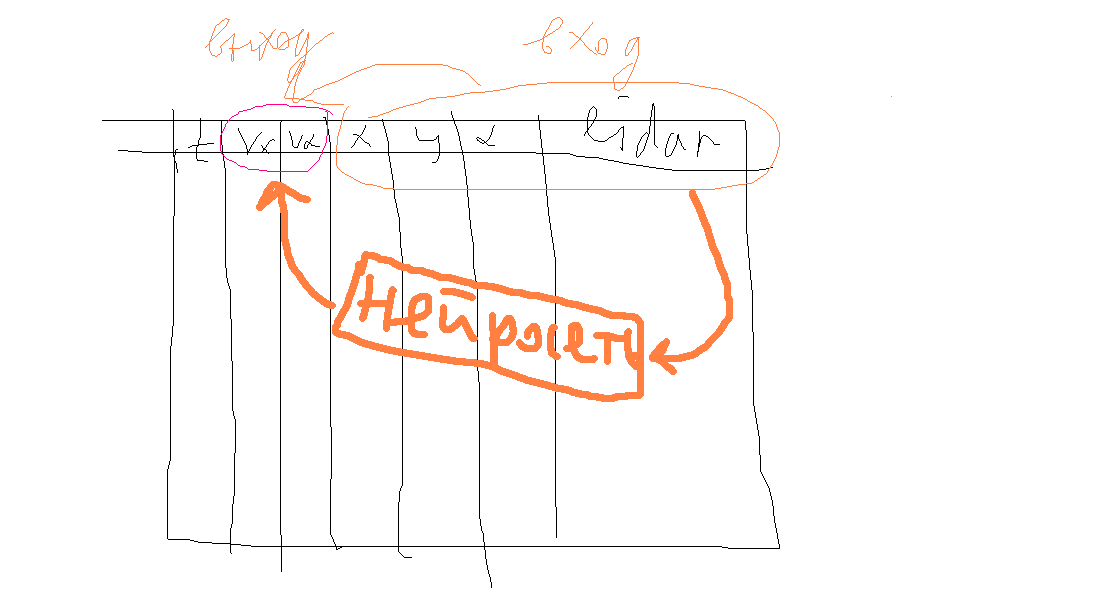 выход вход
t Vx Vα x y α lidar
Нейросеть